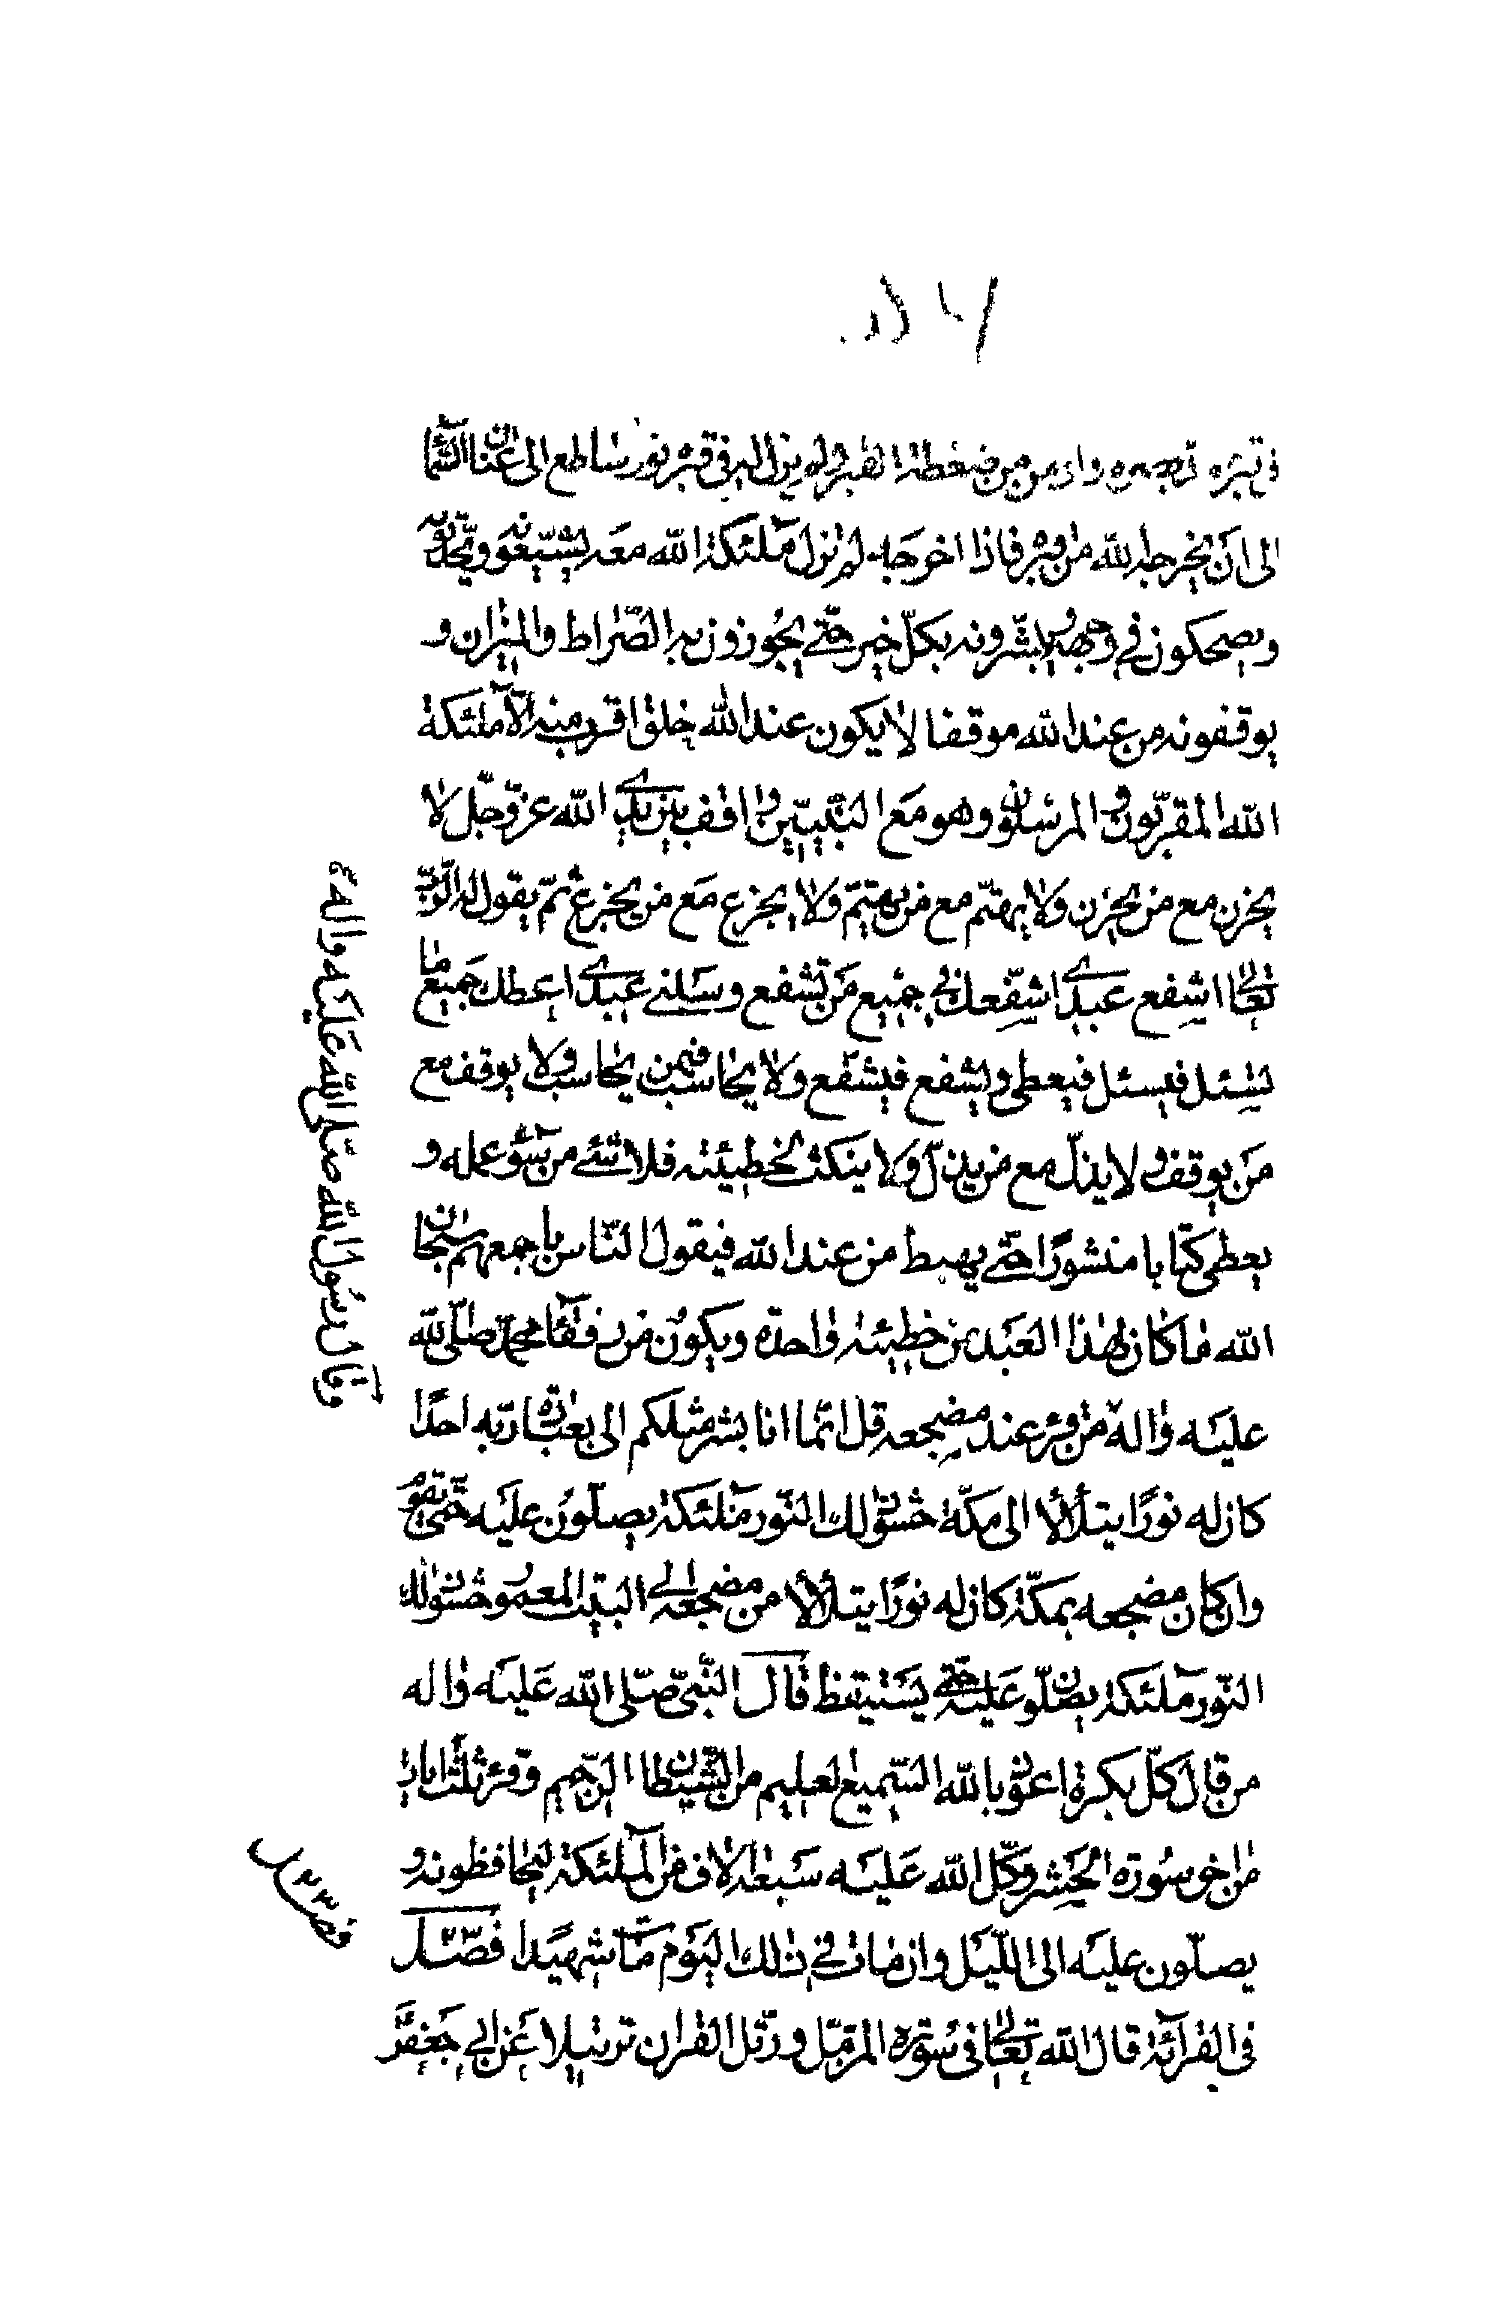 في قبره وامن من ضغطة القبر ولم يزل له في قبره نور ساطع الى عنان السمآء
الى ان يخرجه الله من قبره فاذا اخرجه لم تزل ملئكة الله معه يشيّعونه ويحدّثونه
ويضحكون في وجهه ويبشّرونه بكلّ خير حتّى يجوزون به الصّراط والميزان و
يوقفونه من عند الله موقفا لا يكون عند الله خلق اقرب منه الّا ملئكة
الله المقرّبون والمرسلون وهو مع النّبيّين واقف بين يدي الله عزّ وجلّ لا
يحزن مع من يحزن ولا يهتمّ مع من يهتمّ ولا يجزع مع من يجزع ثمّ يقول له الرّبّ
تعالى اشفع عبدي اشفّعك في جميع من تشفع وسلني عبدي اعطك جميع ما
تسئل فيسئل فيعطى ويشفع فيشفّع ولا يحاسب فيمن يحاسب ولا يوقف مع
من يوقف ولا يذلّ مع من يذلّ ولا ينكث بخطيئته فلا شئ من سوء عمله و
يعطى كتابا منشورًا حتّى يهبط من عند الله فيقول النّاس باجمعهم سبحان
الله ما كان لهذا العبد من خطيئة واحدة ويكون من رفقآء محمّد صلّى الله
عليه واله من قرء عند مضجعه قل انّما انا بشر مثلكم الى بعبادة ربّه احدًا
كان له نورًا يتلألأ الى مكّة حشو ذلك النّور ملئكة يصلّون عليه حتّى يقوم
وان كان مضجعه بمكّة كان له نورًا يتلألأ من مضجعه الى البيت المعمور حشو ذلك
النّور ملئكة يصلّون عليه حتّى يستيقظ قال النّبيّ صلّى الله عليه واله
من قال كلّ بكرة اعوذ بالله السّميع العليم من الشّيطان الرّجيم وقرء ثلث ايات
من اخر سورة الحشر وكّل الله عليه سبعة الاف من الملئكة يحافظونه و
يصلّون عليه الى اللّيل وان مات في ذلك اليوم مات شهيدا فصّل
في القرآئة قال الله تعالى في سورة المزمّل ورتّل القران ترتيلا عن ابي جعفر
وقال رسول الله صلّى الله عليه واله